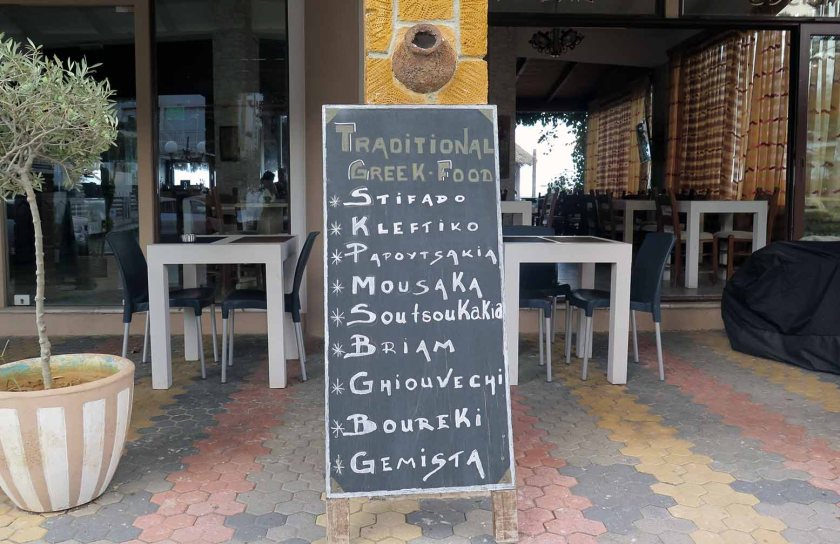 TRADITIONAL
GREEK·FOOD
* STIFADO
* KLEFTIKO
* PAPOYTSAKIA
* MOUSAKA
* SoutsouKakia
* BRIAM
* GHIOUVECHI
* BOUREKI
* GEMISTA